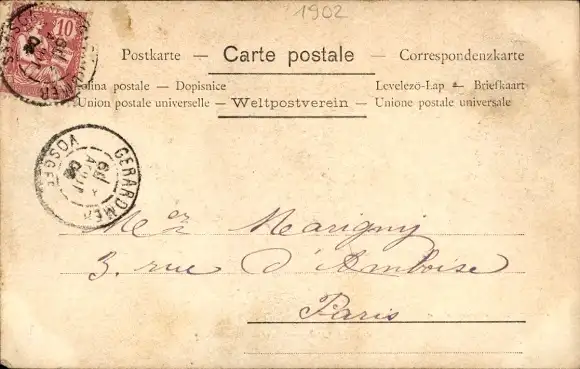 1902
10
Postkarte — Carte postale — Correspondenzkarte
olina postale — Dopisnice
Levelezö-Lap — Briefkaart
Union postale universelle — Weltpostverein — Unione postale universale
GERARDMER
VOSGES
AOUT
Marigny
3. rue d'Amboise
Paris